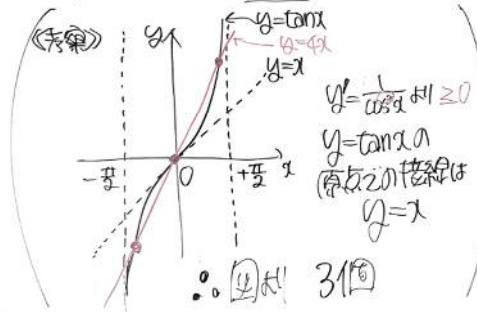 《考察》
y
y=tanx
y=4x
y=x
-π/2
0
+π/2
x
y'=1/cos²x より ≥0
y=tanxの
原点での接線は
y=x
∴ 図より 3個